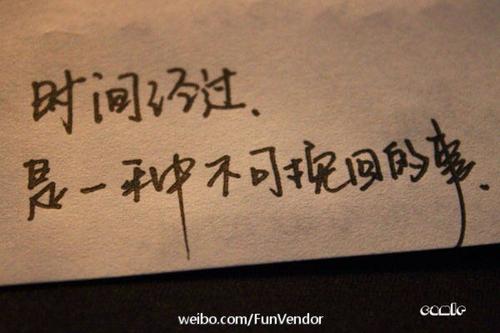 时间经过、
是一种不可挽回的事、
weibo.com/FunVendor